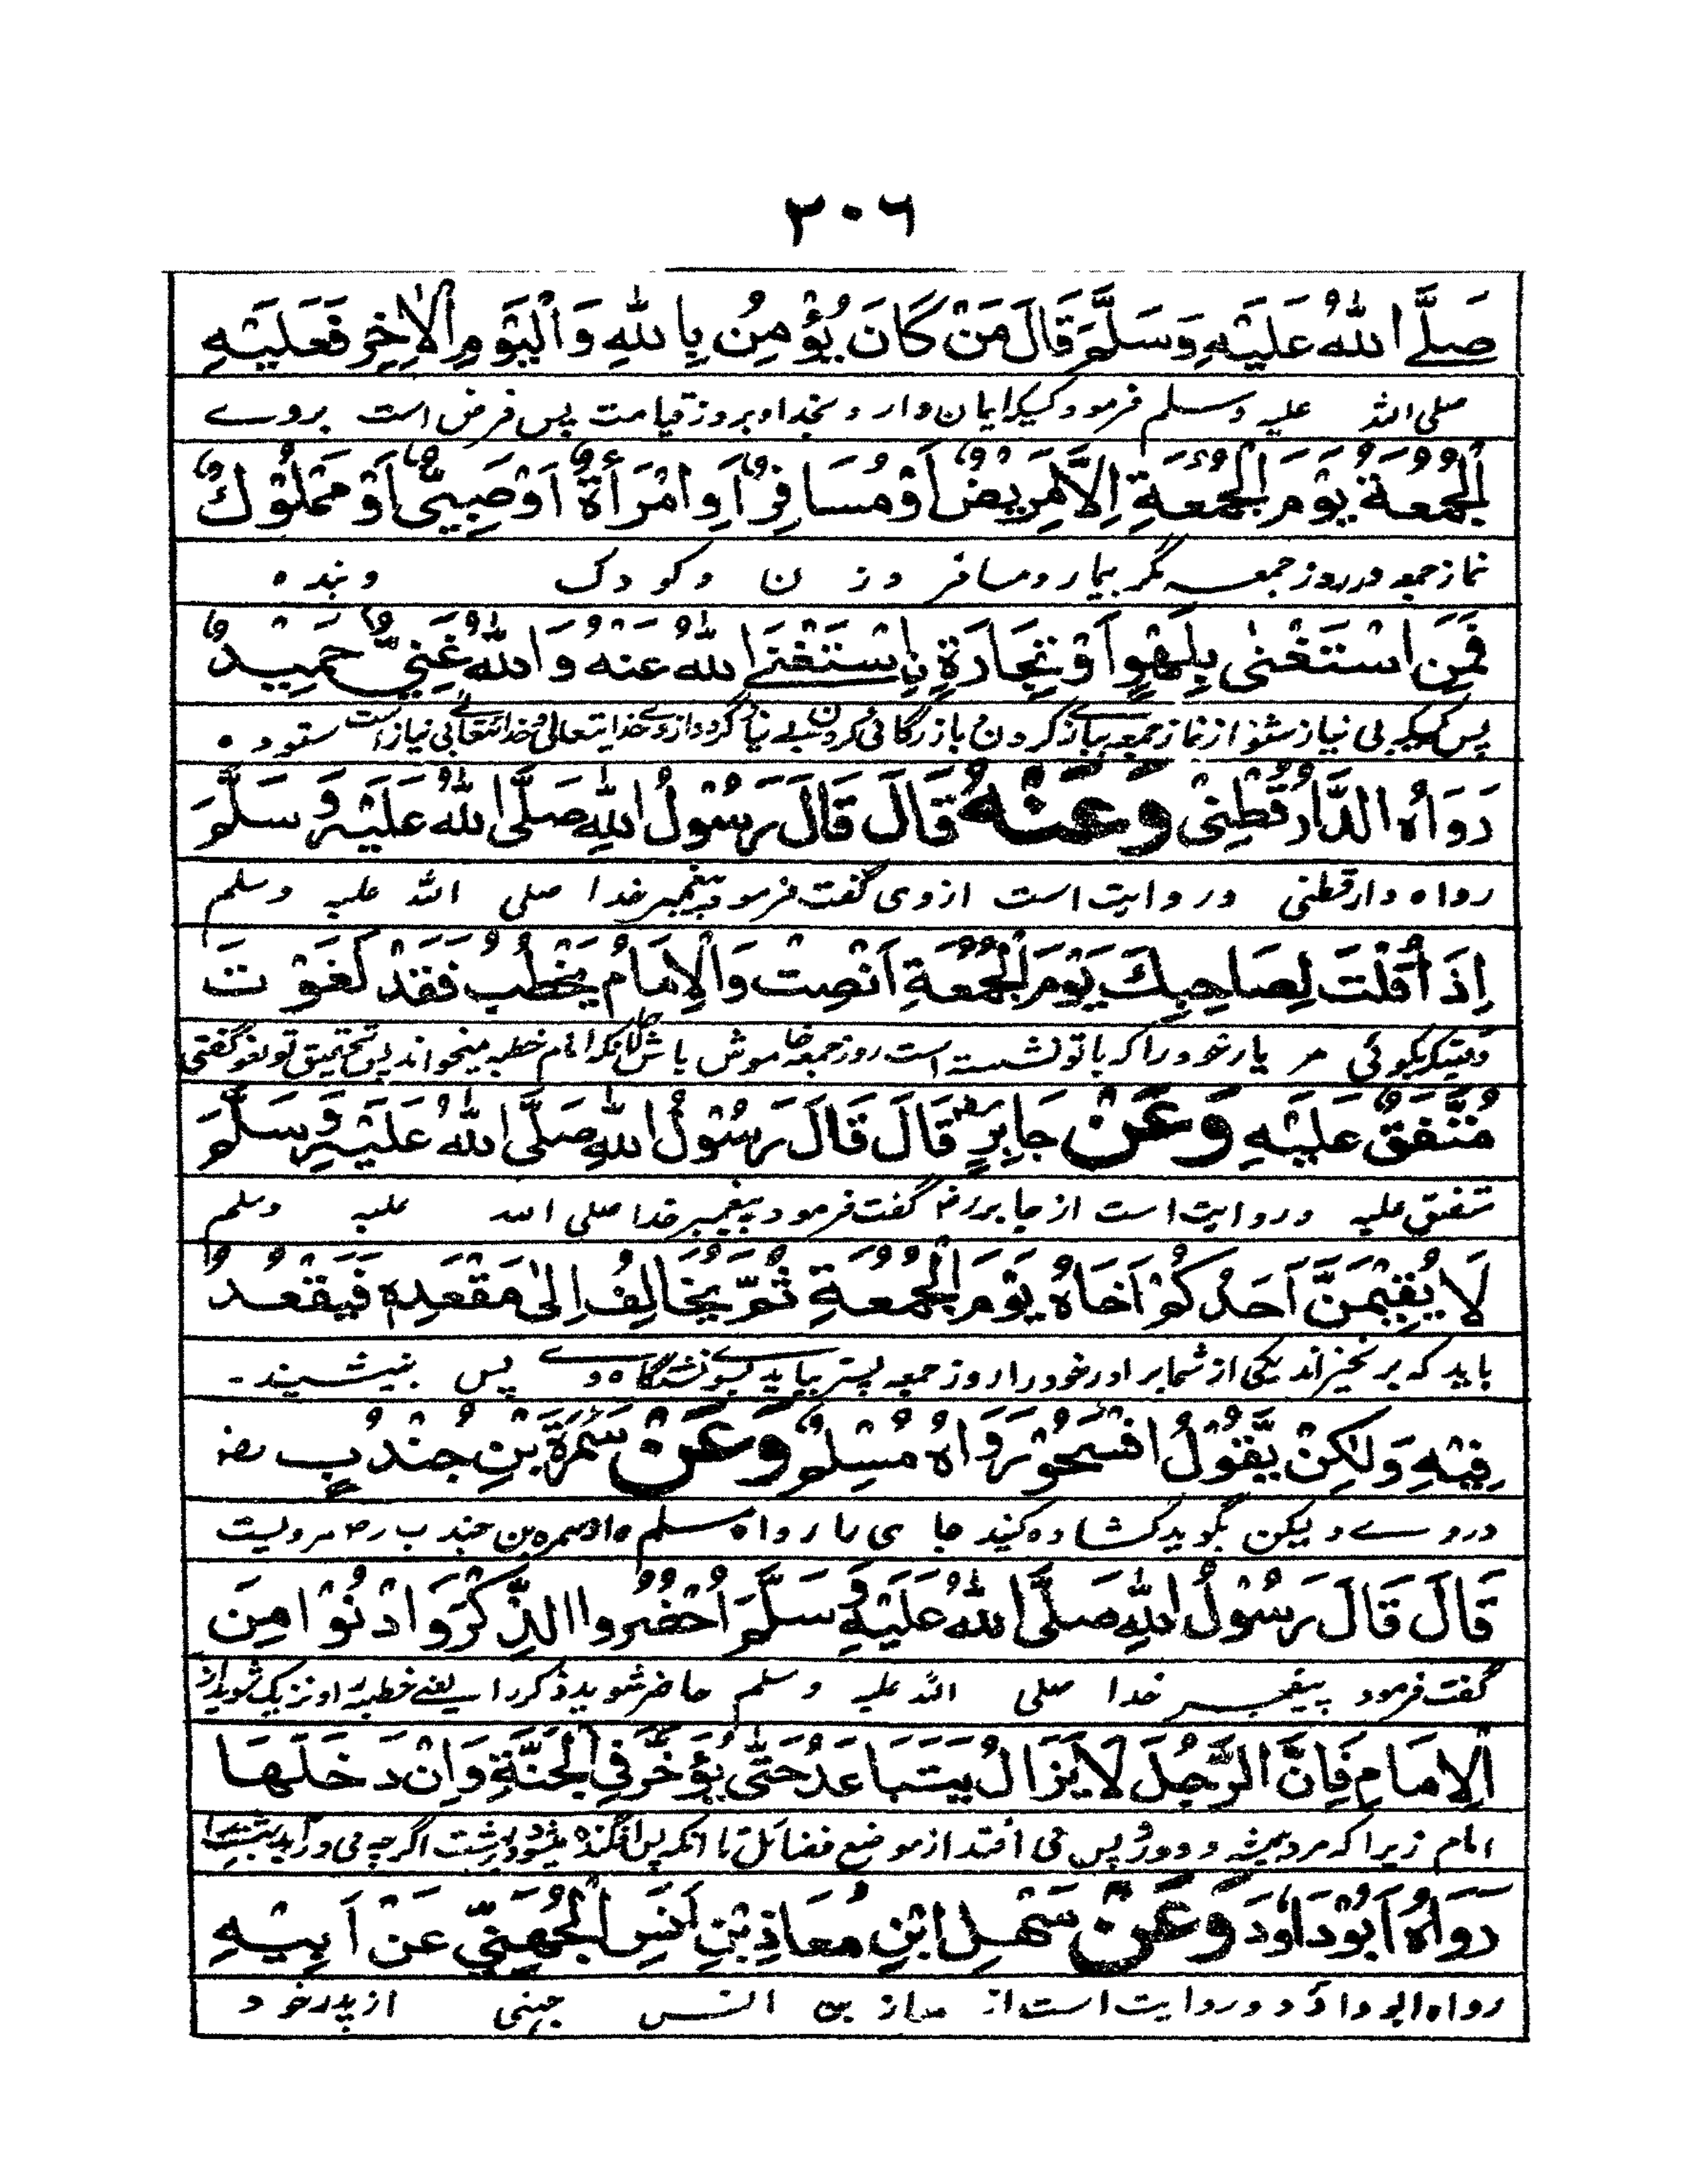 ٣٠٦
صَلَّى اللهُ عَلَيْهِ وَسَلَّمَ قَالَ مَنْ كَانَ يُؤْمِنُ بِاللهِ وَالْيَوْمِ الْاٰخِرِ فَعَلَيْهِ
صلی الله علیه وسلم فرمود کسیکه ایمان دارد بخدا و بروز قیامت پس فرض است بروے
الْجُمُعَةُ يَوْمَ الْجُمُعَةِ اِلَّا مَرِيْضٌ اَوْ مُسَافِرٌ اَوِ امْرَأَةٌ اَوْ صَبِيٌّ اَوْ مَمْلُوْكٌ
نماز جمعه در روز جمعه مگر بیمار و مسافر و زن و کودک و بنده
فَمَنِ اسْتَغْنٰى بِلَهْوٍ اَوْ تِجَارَةٍ نِاسْتَغْنَى اللهُ عَنْهُ وَاللهُ غَنِيٌّ حَمِيْدٌ
پس کسیکه بی نیاز شود از نماز جمعه ببازی کردن یا بازرگانی کردن بے نیاز گردد ازوے خدایتعالی و خدایتعالی بی نیاز است ستوده
رَوَاهُ الدَّارُقُطْنِيْ وَعَنْهُ قَالَ قَالَ رَسُوْلُ اللهِ صَلَّى اللهُ عَلَيْهِ وَسَلَّمَ
رواه دارقطنی و روایت است ازوی گفت فرمود پیغمبر خدا صلی الله علیه وسلم
اِذَا قُلْتَ لِصَاحِبِكَ يَوْمَ الْجُمُعَةِ اَنْصِتْ وَالْاِمَامُ يَخْطُبُ فَقَدْ لَغَوْتَ
وقتیکه بگوئی مر یار خود را که با تو نشسته است روز جمعه خاموش باش حالانکه امام خطبه میخواند پس بتحقیق تو لغو گفتی
مُتَّفَقٌ عَلَيْهِ وَعَنْ جَابِرٍ رض قَالَ قَالَ رَسُوْلُ اللهِ صَلَّى اللهُ عَلَيْهِ وَسَلَّمَ
متفق علیه و روایت است از جابر رض گفت فرمود پیغمبر خدا صلی الله علیه وسلم
لَا يُقِيْمَنَّ اَحَدُكُمْ اَخَاهُ يَوْمَ الْجُمُعَةِ ثُمَّ يُخَالِفُ اِلٰى مَقْعَدِهٖ فَيَقْعُدُ
باید که بر نخیزاند یکی از شما برادر خود را روز جمعه پستر بیاید بسوے نشستگاه وے پس بنشیند -
فِيْهِ وَلٰكِنْ يَّقُوْلُ افْسَحُوْا رَوَاهُ مُسْلِمٌ وَعَنْ سَمُرَةَ بْنِ جُنْدُبٍ رض
دروے و لیکن بگوید کشاده کنید جای را رواه مسلم از سمره بن جندب رض مرویست
قَالَ قَالَ رَسُوْلُ اللهِ صَلَّى اللهُ عَلَيْهِ وَسَلَّمَ اُحْضُرُوا الذِّكْرَ وَادْنُوْا مِنَ
گفت فرمود پیغمبر خدا صلی الله علیه وسلم حاضر شوید ذکر را یعنے خطبه را و نزدیک شوید از
الْاِمَامِ فَاِنَّ الرَّجُلَ لَا يَزَالُ يَتَبَاعَدُ حَتّٰى يُؤَخَّرَ فِي الْجَنَّةِ وَاِنْ دَخَلَهَا
امام زیرا که مرد همیشه دور و پس می افتد از موضع فضائل تا آنکه پس افگنده میشود در بهشت اگرچه می در آید بهشت را
رَوَاهُ اَبُوْ دَاوٗدَ وَعَنْ سَهْلِ ابْنِ مُعَاذِ بْنِ اَنَسِ الْجُهَنِيِّ عَنْ اَبِيْهِ
رواه ابو داؤد و روایت است از معاذ بن انس جهنی از پدر خود